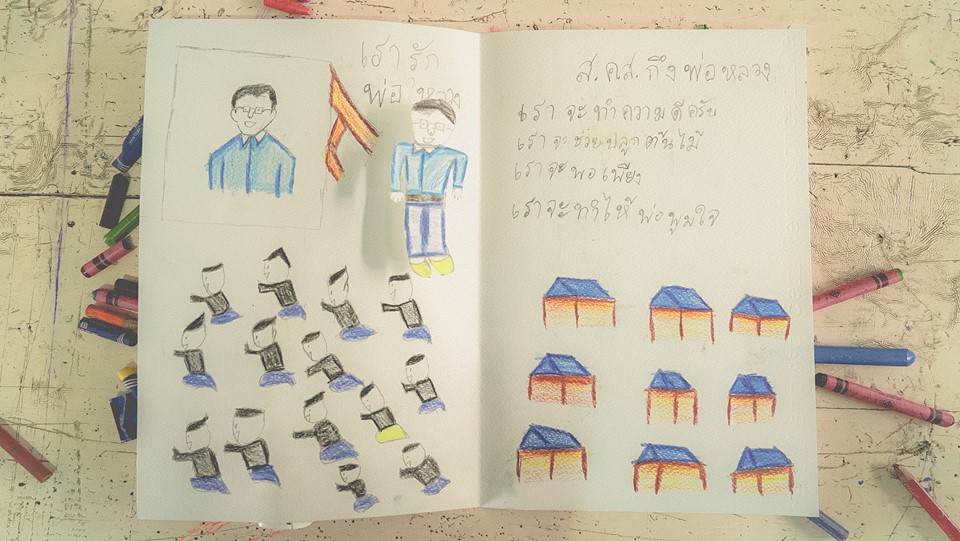 เรารัก
พ่อหลวง
ส.ค.ส. ถึงพ่อหลวง
เราจะทำความดีครับ
เราจะช่วยปลูกต้นไม้
เราจะพอเพียง
เราจะทำให้พ่อภูมใจ